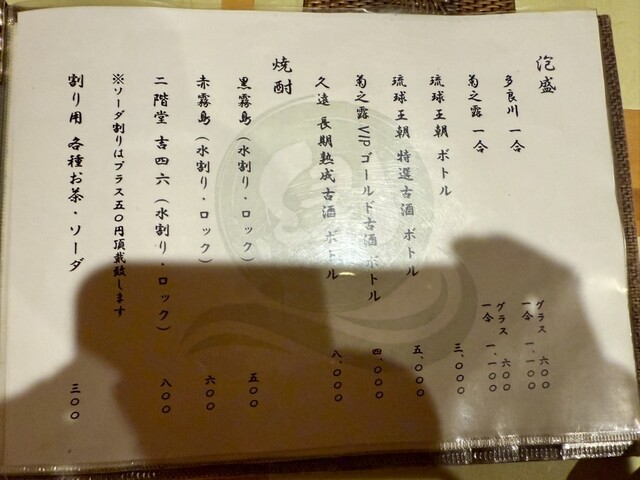 泡盛
多良川 一合
グラス 六〇〇
一合 一、一〇〇
菊之露 一合
グラス 六〇〇
一合 一、一〇〇
琉球王朝 ボトル 三、〇〇〇
琉球王朝 特選古酒 ボトル 五、〇〇〇
菊之露 VIP ゴールド古酒 ボトル 四、〇〇〇
久遠 長期熟成古酒 ボトル 八、〇〇〇
焼酎
黒霧島（水割り・ロック） 五〇〇
赤霧島（水割り・ロック） 六〇〇
二階堂 吉四六（水割り・ロック） 八〇〇
※ソーダ割りはプラス五〇円頂戴致します
割り用 各種お茶・ソーダ 三〇〇